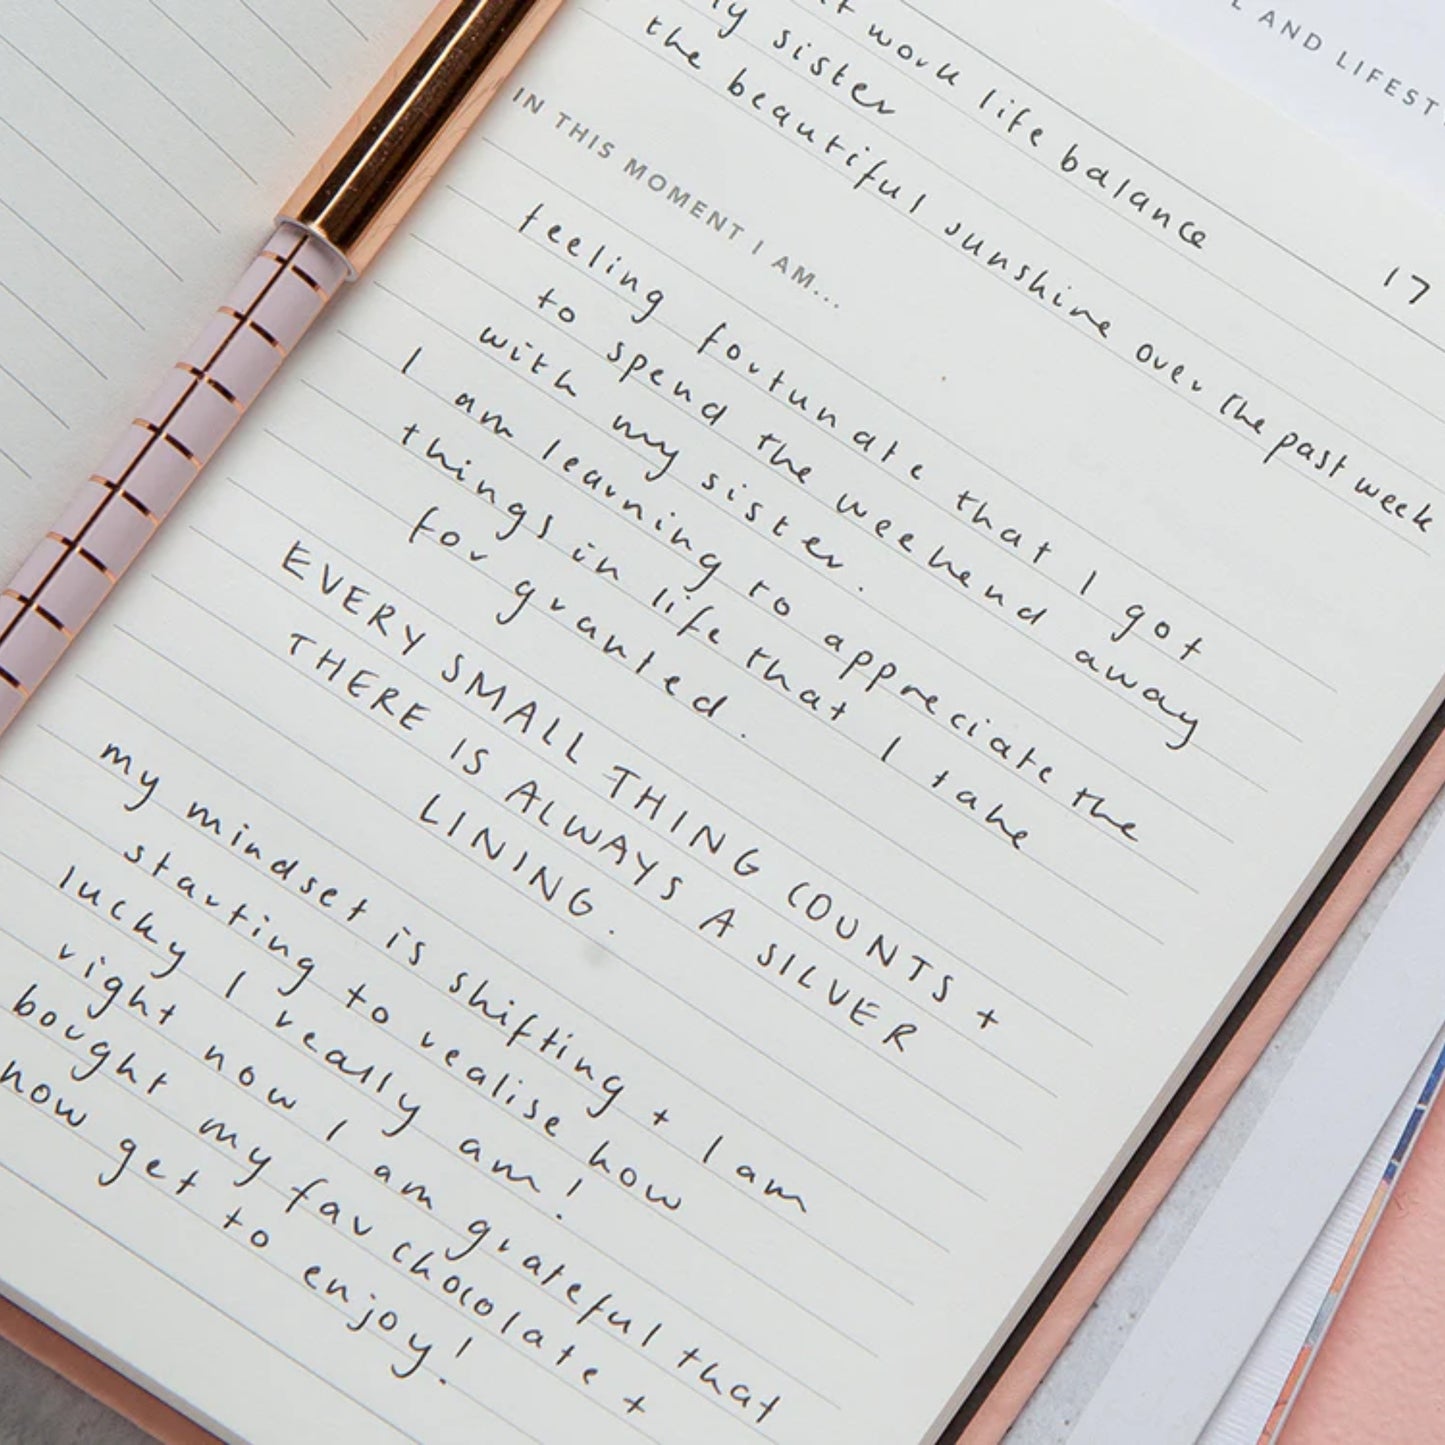 work life balance
sister
the beautiful sunshine over the past week
17
AND LIFEST
IN THIS MOMENT I AM...
feeling fortunate that I got
to spend the weekend away
with my sister.
I am learning to appreciate the
things in life that I take
for granted.
EVERY SMALL THING COUNTS +
THERE IS ALWAYS A SILVER
LINING.
my mindset is shifting + I am
starting to realise how
lucky I really am!
right now I am grateful that
bought my fav chocolate +
now get to enjoy!